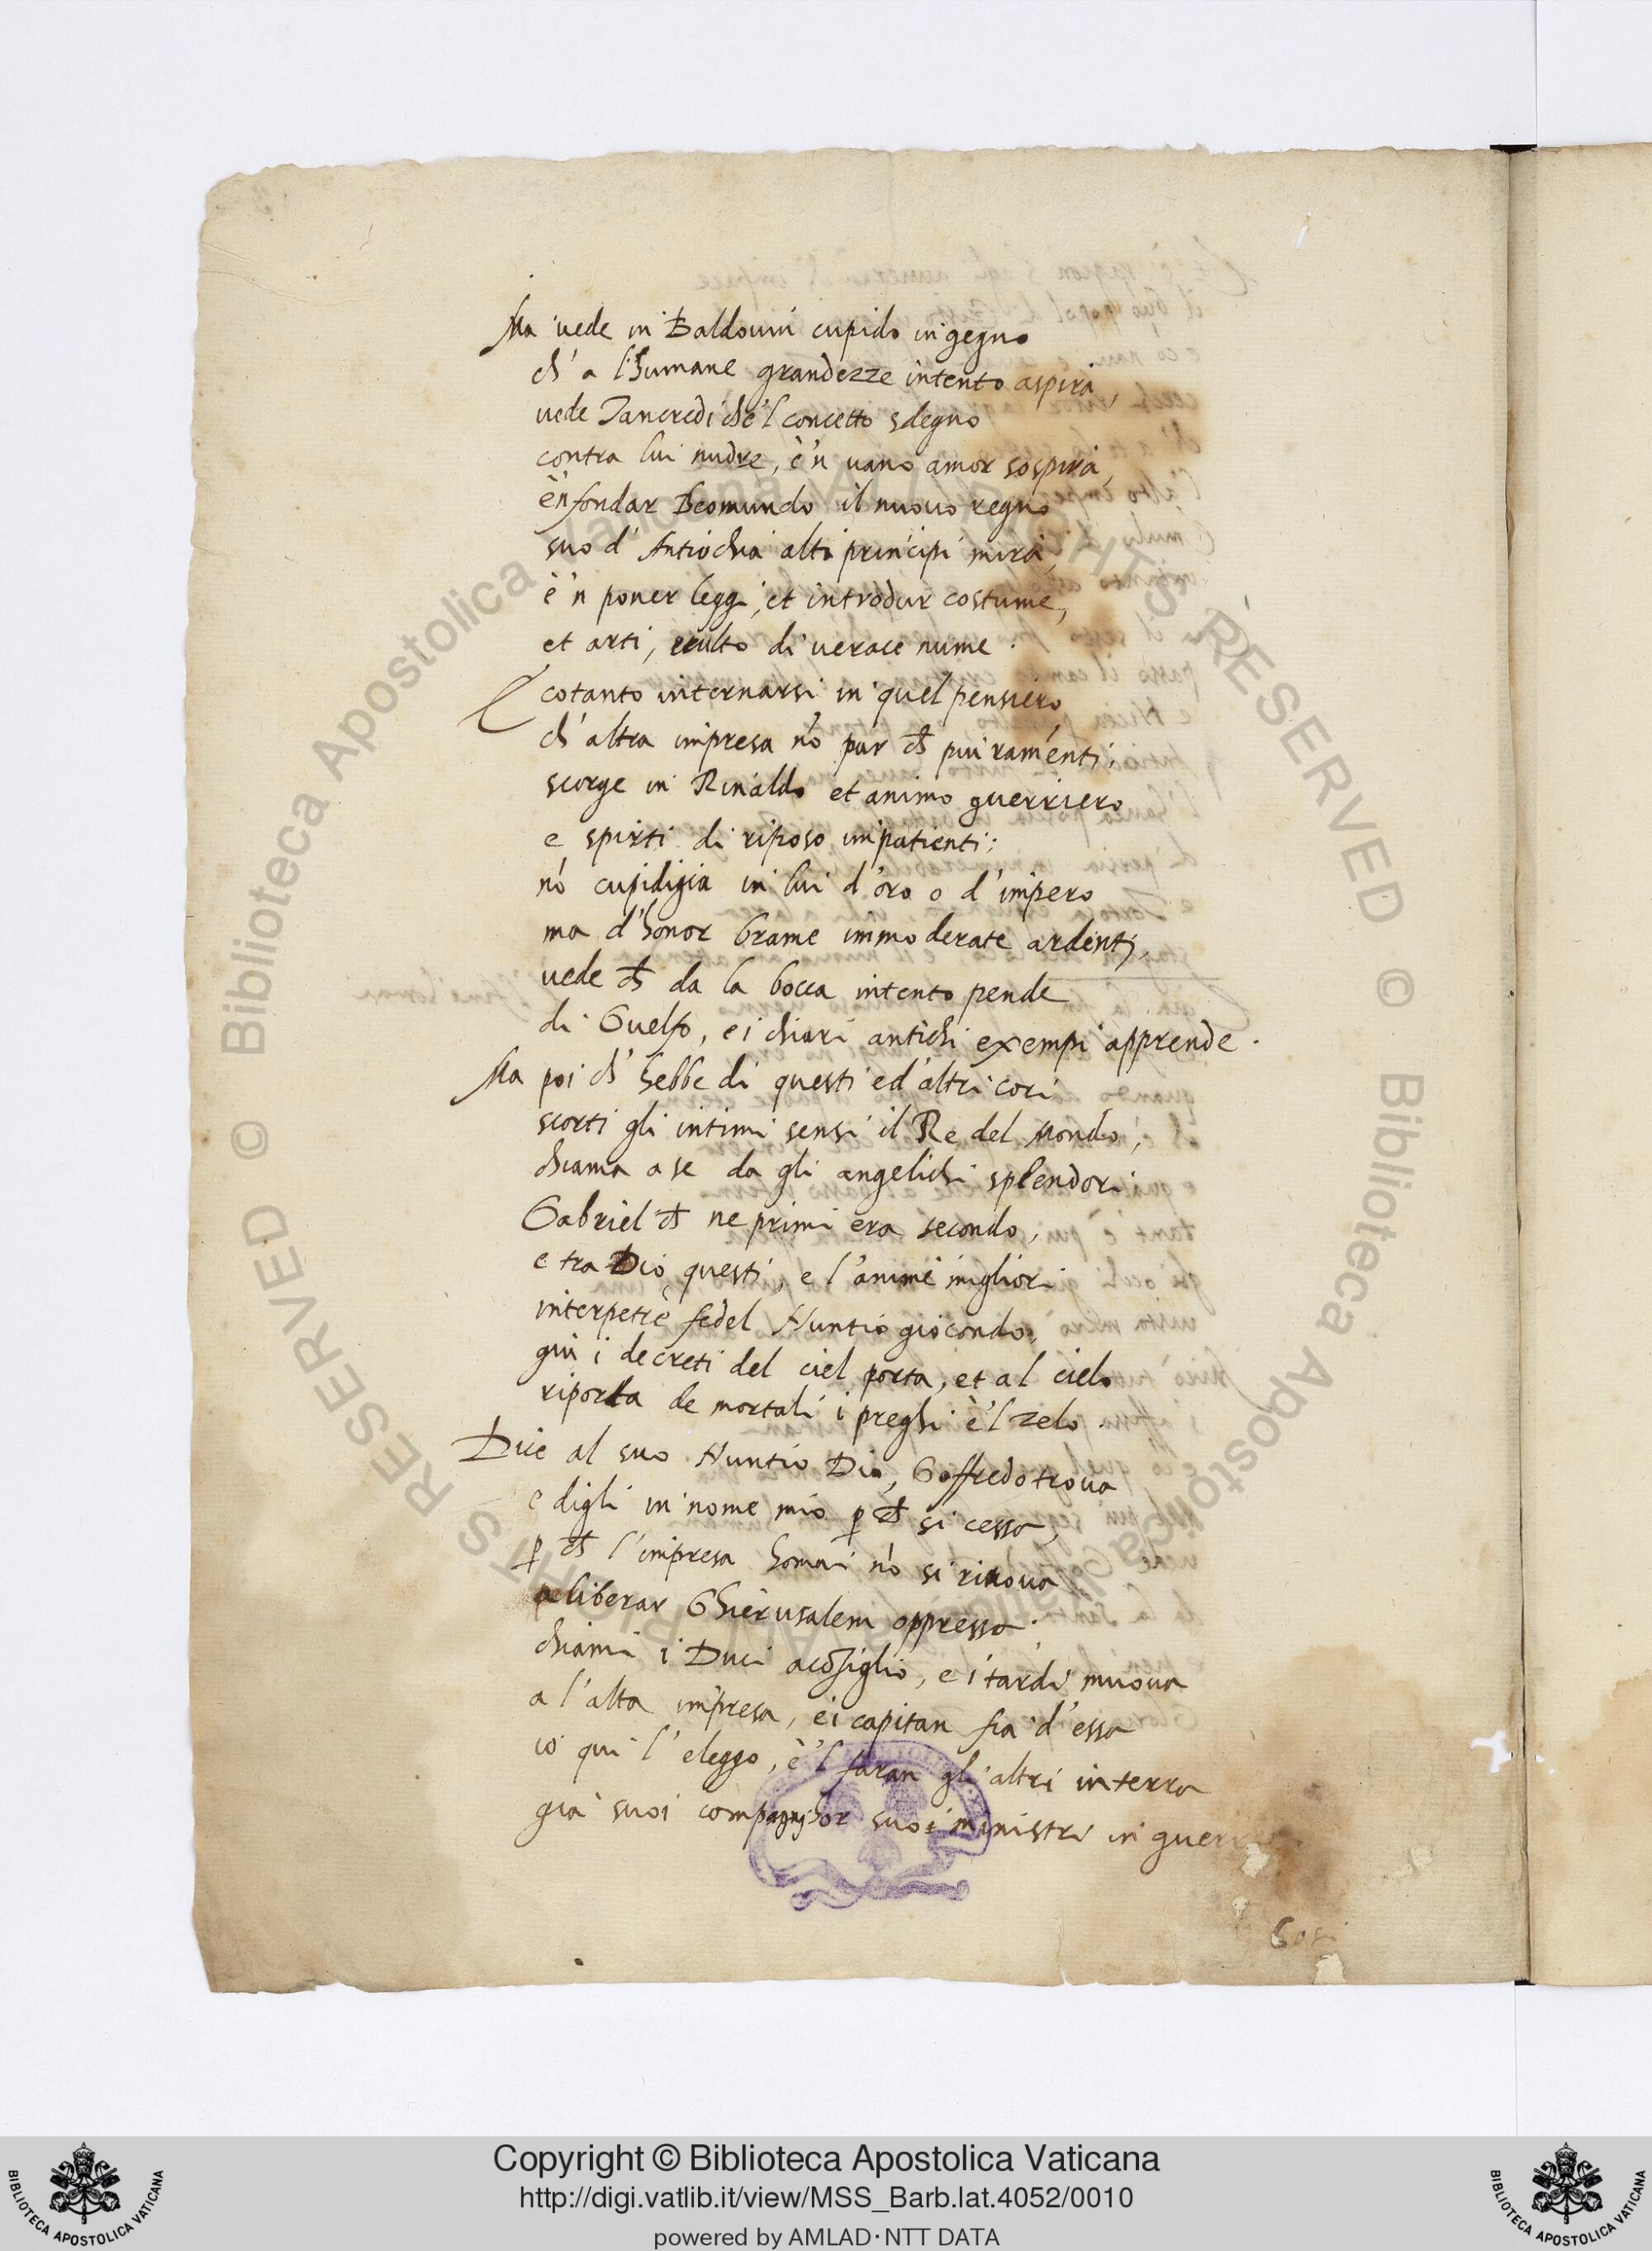 Ma vede in Baldovin cupido ingegno
ch' a l'humane grandezze intento aspira,
vede Tancredi che'l concetto sdegno
contra lui nudre, è'n vano amor sospira,
è'n fondar Beomundo il nuovo regno
suo d' Antiochia alti principi mira,
è'n poner leggi, et introdur costume,
et arti, e culto di verace nume.
E cotanto internarsi in quel pensiero,
ch' altra impresa nō par ch̄ più ramenti;
scorge in Rinaldo et animo guerriero
e spirti di riposo impatienti;
nō cupidigia in lui d'oro o d'impero
ma d'honor brame immoderate ardenti,
vede ch̄ da la bocca intento pende
di Guelfo, e i chiari antichi exempi apprende.
Ma poi ch' hebbe di questi ed altri cori
scorti gli intimi sensi il Re del Mondo;
chiama a se da gli angelichi splendori
Gabriel ch̄ ne primi era secondo,
e tra Dio questi, e l'anime migliori
interpetre fedel Nuntio giocondo,
giù i decreti del ciel porta, et al cielo
riporta de mortali i preghi è'l zelo.
Dice al suo Nuntio Dio, Goffredo trova
e digli in nome mio ꝑ ch̄ si cessa,
ꝑ ch̄ l'impresa homai nō si rinova
a liberar Ghierusalem oppressa.
chiami i Duci a cōsiglio, e i tardi muova
a l'alta impresa, ei capitan fia d'essa
io qui l'eleggo, è'l faran gli altri in terra
gia suoi compagni hor suoi ministri in guerra.
Cosi
Copyright © Biblioteca Apostolica Vaticana
http://digi.vatlib.it/view/MSS_Barb.lat.4052/0010
powered by AMLAD·NTT DATA
BIBLIOTECA APOSTOLICA VATICANA
BIBLIOTECA APOSTOLICA VATICANA